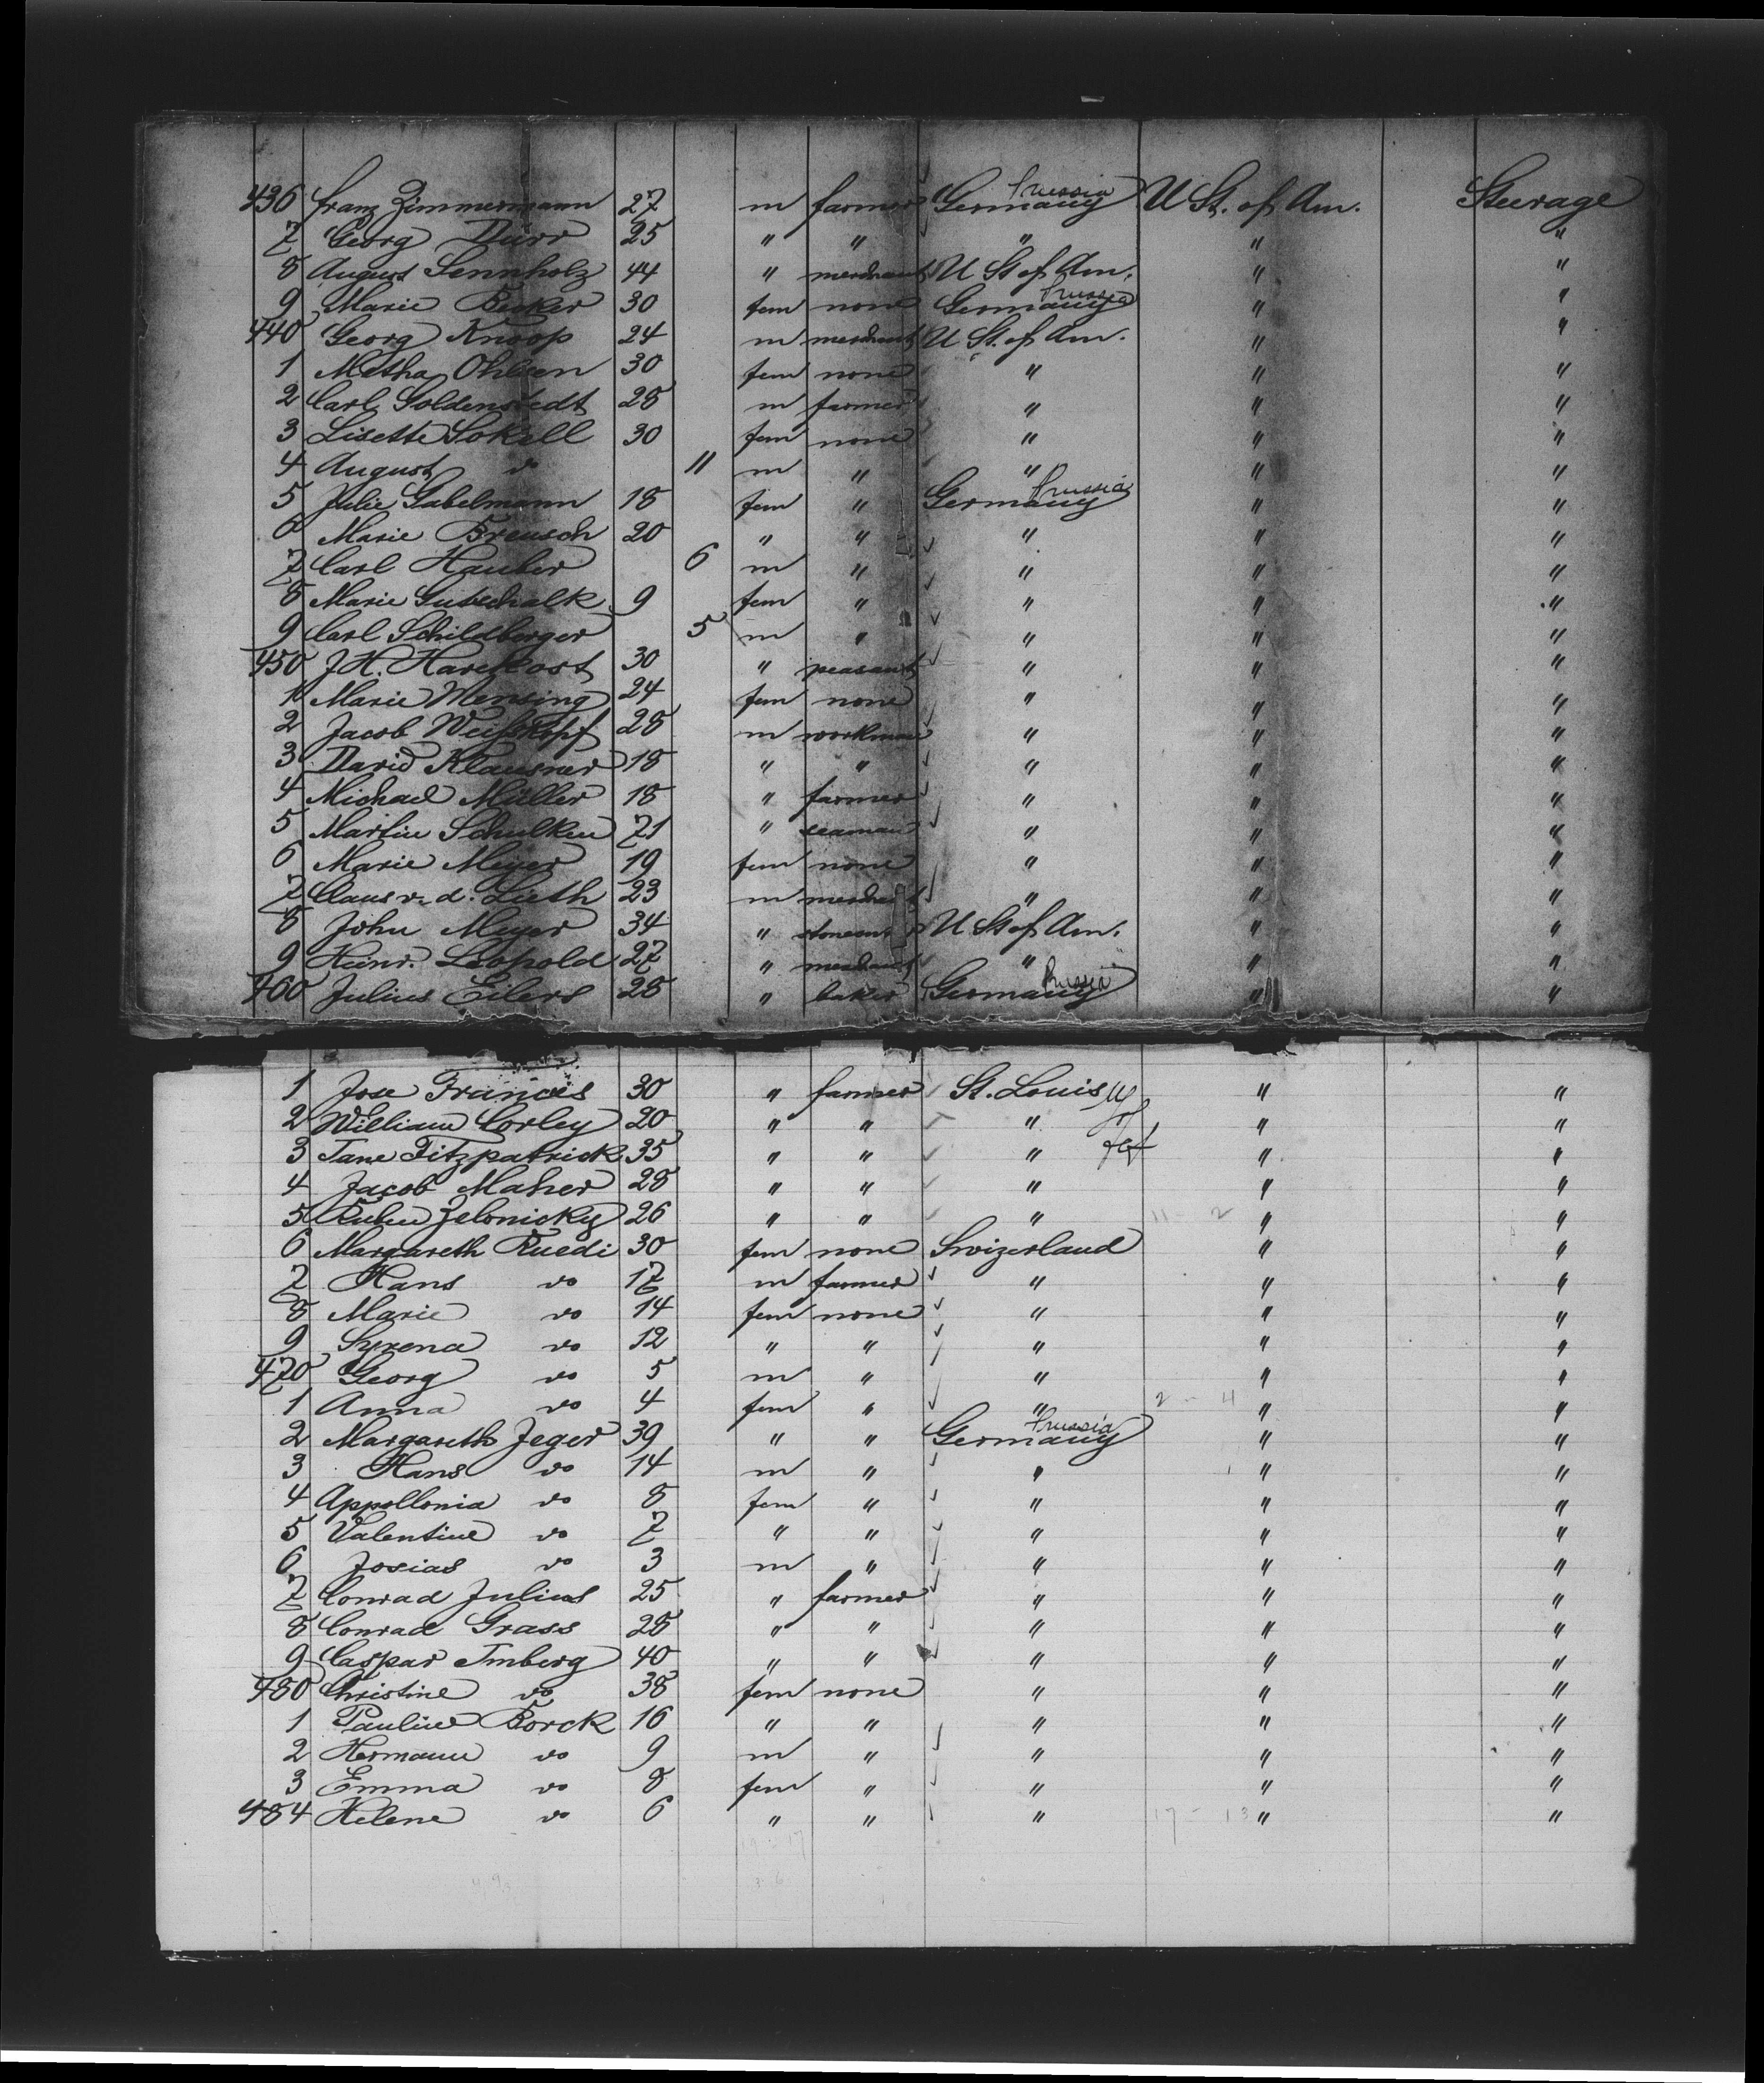 436 Franz Zimmermann 27 m farmer Germany Prussia U St. of Am. Steerage
7 Georg Dürr 25 " " " " "
8 August Sennholz 44 " merchant U St of Am. " "
9 Marie Becker 30 fem none Germany Prussia " "
440 Georg Knoop 24 m merchant U St. of Am. " "
1 Metha Ohlsen 30 fem none " " "
2 Carl Goldenstedt 28 m farmer " " "
3 Lisette Sokell 30 fem none " " "
4 August do 11 m " " " "
5 Julie Gabelmann 18 fem " Germany Prussia " "
6 Marie Breusch 20 " " " " "
7 Carl Hauber 6 m " " " "
8 Marie Gutschalk 9 fem " " " "
9 Carl Schildberger 5 m " " " "
450 J.H. Harekost 30 " peasant " " "
1 Marie Mensing 24 fem none " " "
2 Jacob Weißkopf 28 m workman " " "
3 David Klausner 18 " " " " "
4 Michael Müller 18 " farmer " " "
5 Martin Schulken 21 " seaman " " "
6 Marie Meyer 19 fem none " " "
7 Claus v. d. Lieth 23 m merchant " " "
8 John Meyer 34 " stonecut U St of Am. " "
9 Heinr. Leopold 27 " merchant " " "
460 Julius Eilers 28 " baker Germany Prussia " "
1 Jose Francis 30 " farmer St. Louis " "
2 William Corley 20 " " " " "
3 Jane Fitzpatrick 35 " " " " "
4 Jacob Maher 28 " " " " "
5 Ruben Zelonicky 26 " " " 11 - 2 " "
6 Margareth Ruedi 30 fem none Swizerland " "
7 Hans do 17 m farmer " " "
8 Marie do 14 fem none " " "
9 Syrena do 12 " " " " "
470 Georg do 5 m " " " "
1 Anna do 4 fem " " 2 - 4 " "
2 Margareth Jeger 39 " " Germany Prussia " "
3 Hans do 14 m " " " "
4 Appollonia do 8 fem " " " "
5 Valentine do 7 " " " " "
6 Josias do 3 m " " " "
7 Conrad Julius 25 " farmer " " "
8 Conrad Grass 28 " " " " "
9 Caspar Imberg 40 " " " " "
480 Christine do 38 fem none " " "
1 Pauline Borck 16 " " " " "
2 Hermann do 9 m " " " "
3 Emma do 8 fem " " " "
484 Helene do 6 " " " 17 - 13 " "